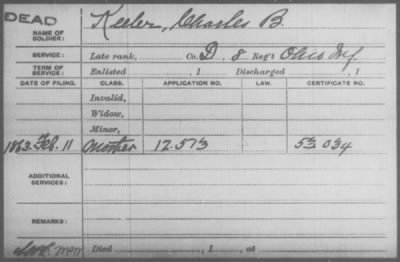 DEAD
NAME OF SOLDIER: Keeler, Charles B.
SERVICE: Late rank, Co. D, 8 Reg't Ohio Inf.
TERM OF SERVICE: Enlisted , 1 Discharged , 1
DATE OF FILING. CLASS. APPLICATION NO. LAW. CERTIFICATE NO.
Invalid,
Widow,
Minor,
1863. Feb. 11 Mother 12.573 53 034
ADDITIONAL SERVICES:
REMARKS:
Died , 1 , at